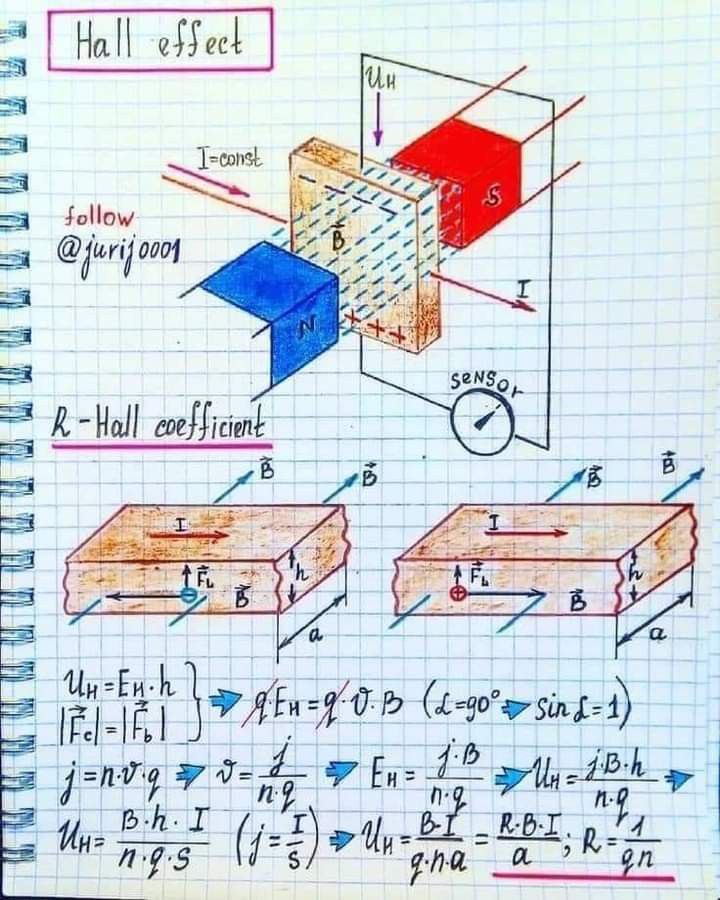 Hall effect
U_H
I=const
S
follow
@jurij0001
B⃗
- - - -
N
+ + +
I
sensor
R-Hall coefficient
B⃗ B⃗ B⃗ B⃗
I I
F⃗_L h F⃗_L h
⊖ B⃗ ⊕ B⃗
a a
U_H=E_H·h
|F⃗c|=|F⃗_b| } ➡ q·E_H=q·υ·B (α=90° ➡ sin α=1)
j=n·υ·q ➡ υ=j/(n·q) ➡ E_H=(j·B)/(n·q) ➡ U_H=(j·B·h)/(n·q) ➡
U_H=(B·h·I)/(n·q·s) (j=I/s) ➡ U_H=(B·I)/(q·n·a)=(R·B·I)/a; R=1/(qn)